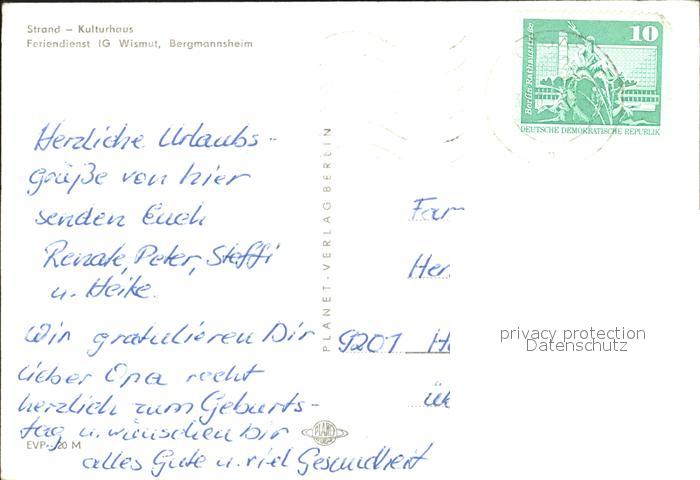 Strand – Kulturhaus
Feriendienst IG Wismut, Bergmannsheim
10
Berlin, Rathausstraße
DEUTSCHE DEMOKRATISCHE REPUBLIK
Herzliche Urlaubs-
grüße von hier
senden Euch
Renate, Peter, Steffi
u. Heike.
Wir gratulieren Dir
lieber Opa recht
herzlich zum Geburts-
tag u. wünschen Dir
alles Gute u. viel Gesundheit
EVP –,20 M
PLANET-VERLAG BERLIN
PLANET
Fam
Her
9201 H
privacy protection
Datenschutz